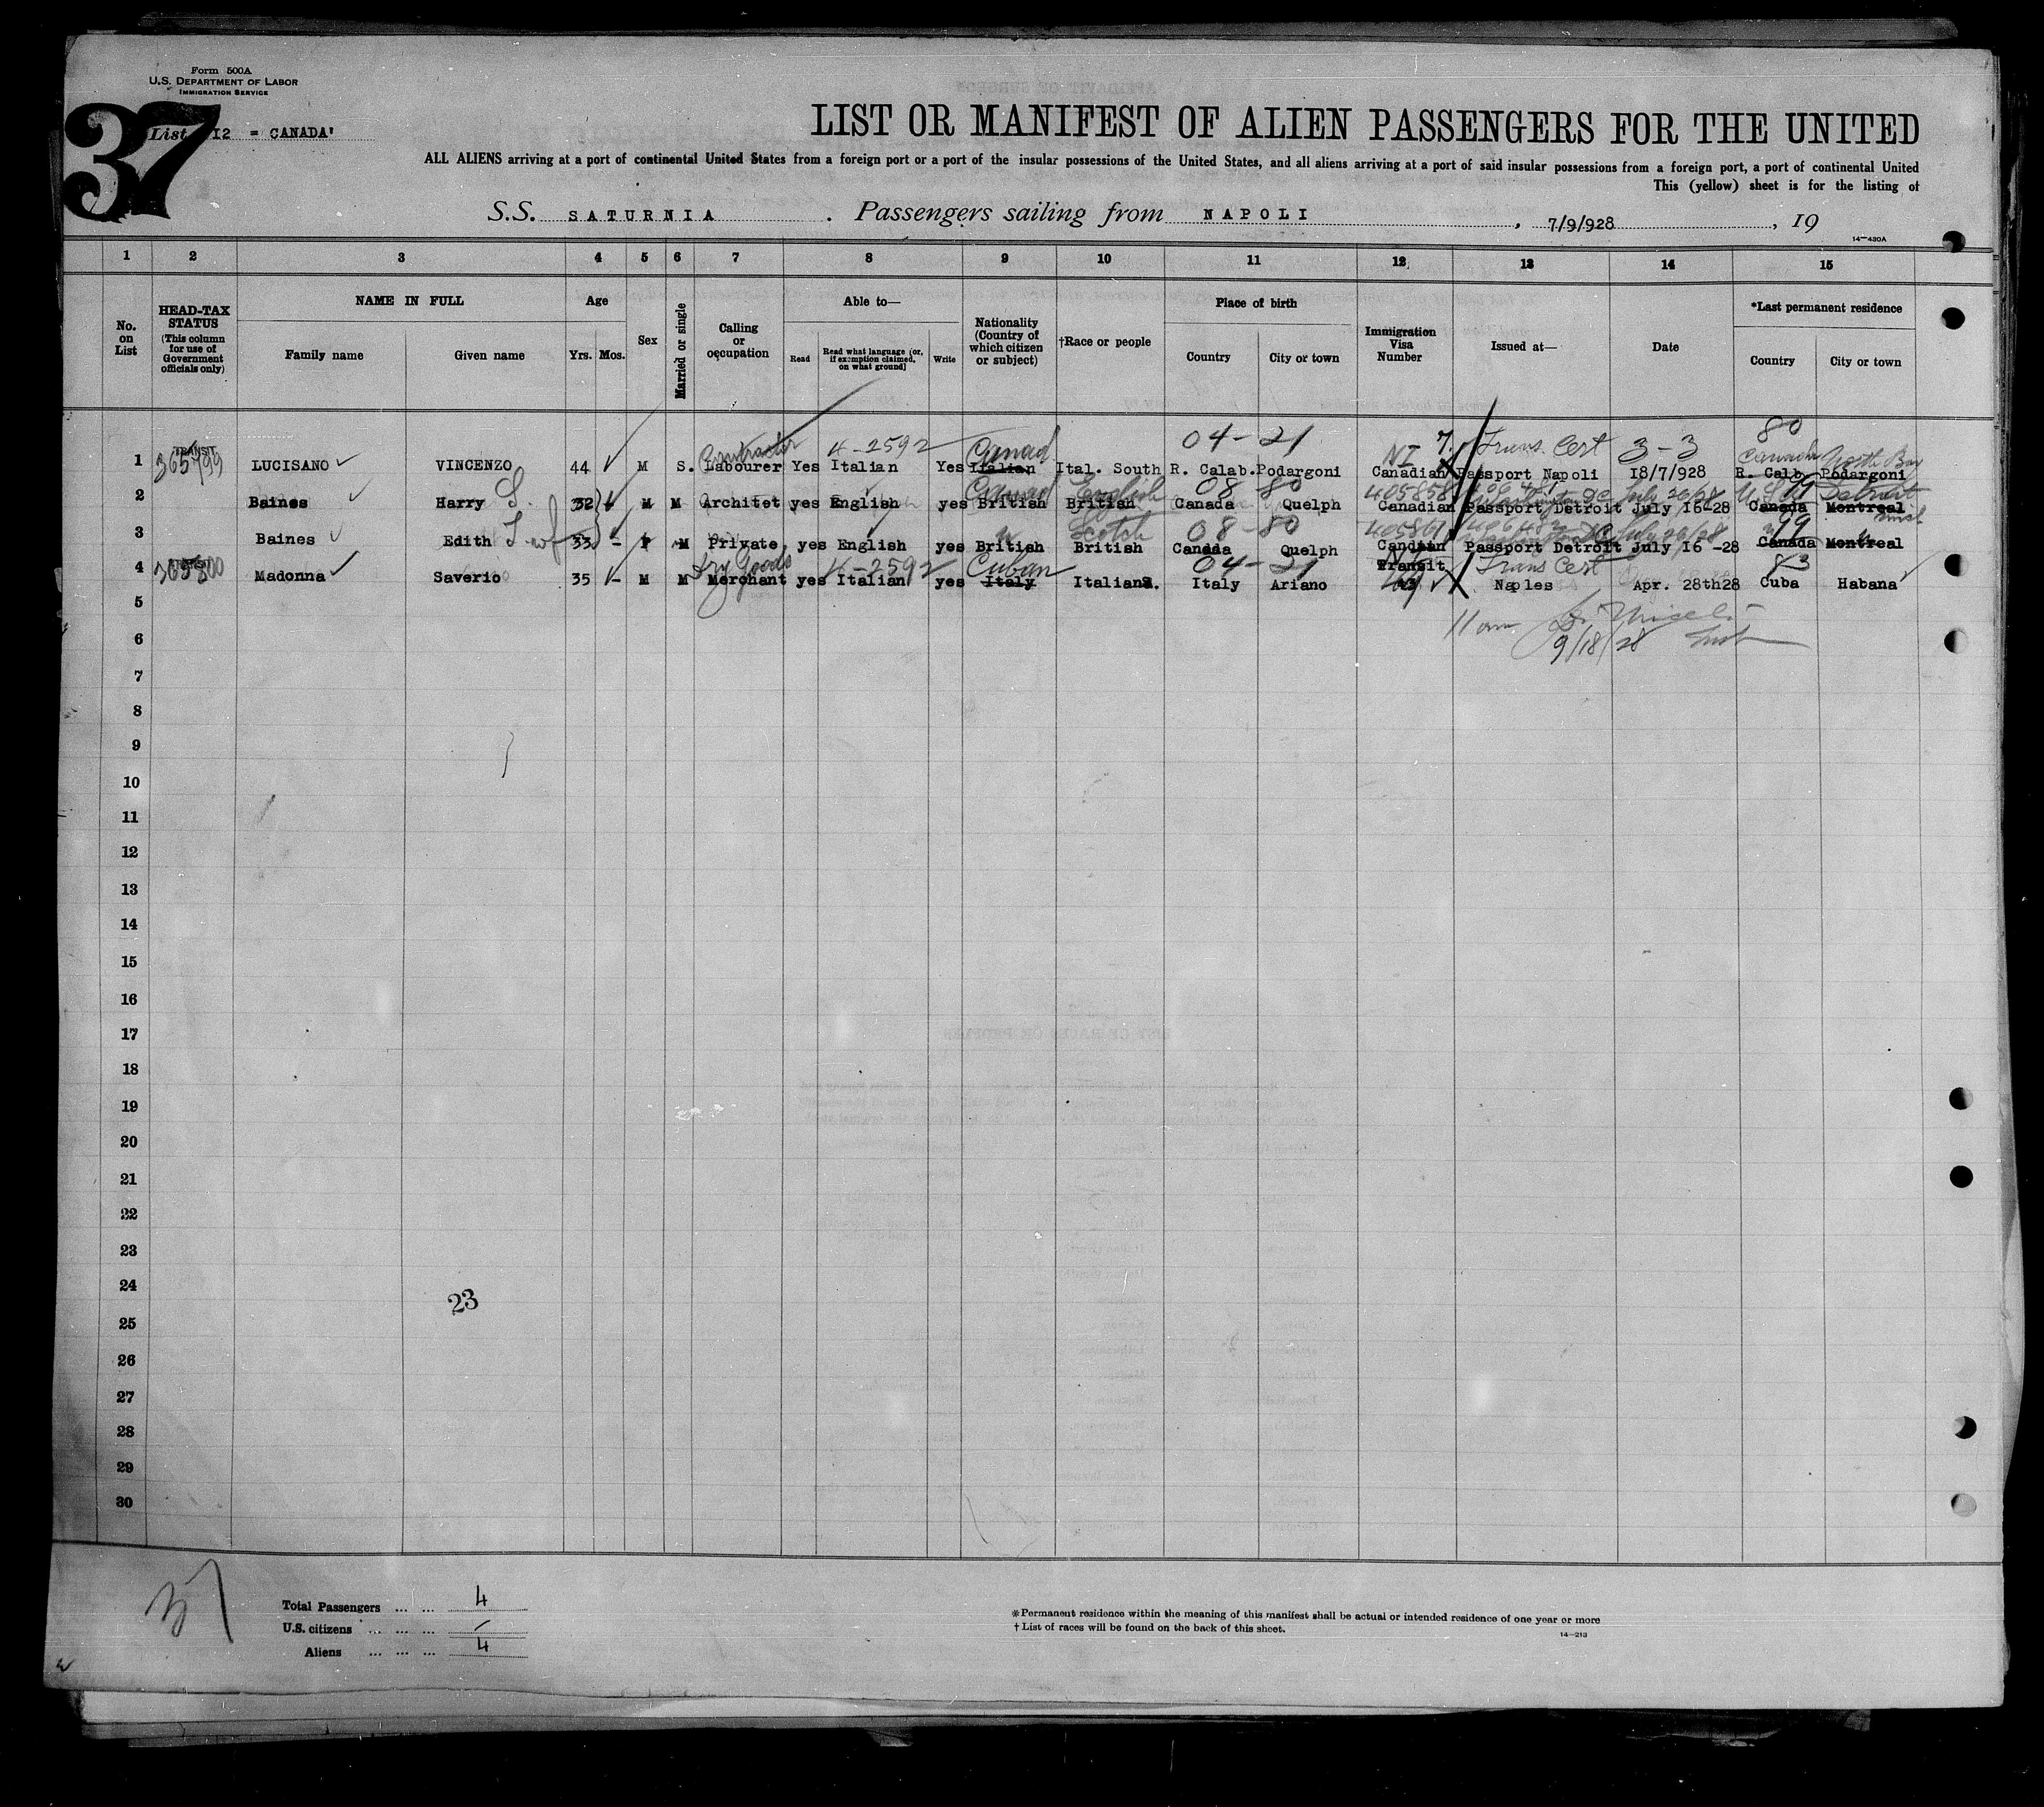 Form 500A
U.S. DEPARTMENT OF LABOR
IMMIGRATION SERVICE
37
List I2 = CANADA'
LIST OR MANIFEST OF ALIEN PASSENGERS FOR THE UNITED
ALL ALIENS arriving at a port of continental United States from a foreign port or a port of the insular possessions of the United States, and all aliens arriving at a port of said insular possessions from a foreign port, a port of continental United
This (yellow) sheet is for the listing of
S.S. SATURNIA. Passengers sailing from NAPOLI, 7/9/928, 19
14—430A
1 2 3 4 5 6 7 8 9 10 11 12 13 14 15
No. on List
HEAD-TAX STATUS (This column for use of Government officials only)
NAME IN FULL
Family name Given name
Age
Yrs. Mos.
Sex
Married or single
Calling or occupation
Able to—
Read Read what language [or, if exemption claimed, on what ground] Write
Nationality (Country of which citizen or subject)
†Race or people
Place of birth
Country City or town
Immigration Visa Number
Issued at—
Date
*Last permanent residence
Country City or town
Contractor 4-2592 Canad 04-21 NI 7. Trans. Cert 3-3 80
TRANSIT 365799 Canada North Bay
1 LUCISANO VINCENZO 44 M S. Labourer Yes Italian Yes Italian Ital. South R. Calab. Podargoni Canadian Passport Napoli I8/7/928 R. Calb. Podargoni
S. Canad English 08-80 405858 406481 Washington DC July 26/28 U.S. 99 Detroit
2 Baines Harry 32 M M Architet yes English yes British British Canada Quelph Canadian Passport Detroit July I6-28 Canada Montreal
T wf " Scotch 08-80 405861 406482 Washington DC July 26/28 99 Mich
3 Baines Edith 33 - F M Private yes English yes British British Canada Quelph Candian Passport Detroit July I6 -28 Canada Montreal
365800 Dry Goods 4-2592 Cuban 04-21 Transit Trans Cert 83
4 Madonna Saverio 35 - M M Merchant yes Italian yes Italy Italian S. Italy Ariano Naples Apr. 28th28 Cuba Habana
5
11 am
6
9/18/28
7
8
9
10
11
12
13
14
15
16
17
18
19
20
21
22
23
24
23
25
26
27
28
29
30
37
Total Passengers ... ... 4
U.S. citizens ... ... ... /
Aliens ... ... ... 4
*Permanent residence within the meaning of this manifest shall be actual or intended residence of one year or more
† List of races will be found on the back of this sheet.
14—213